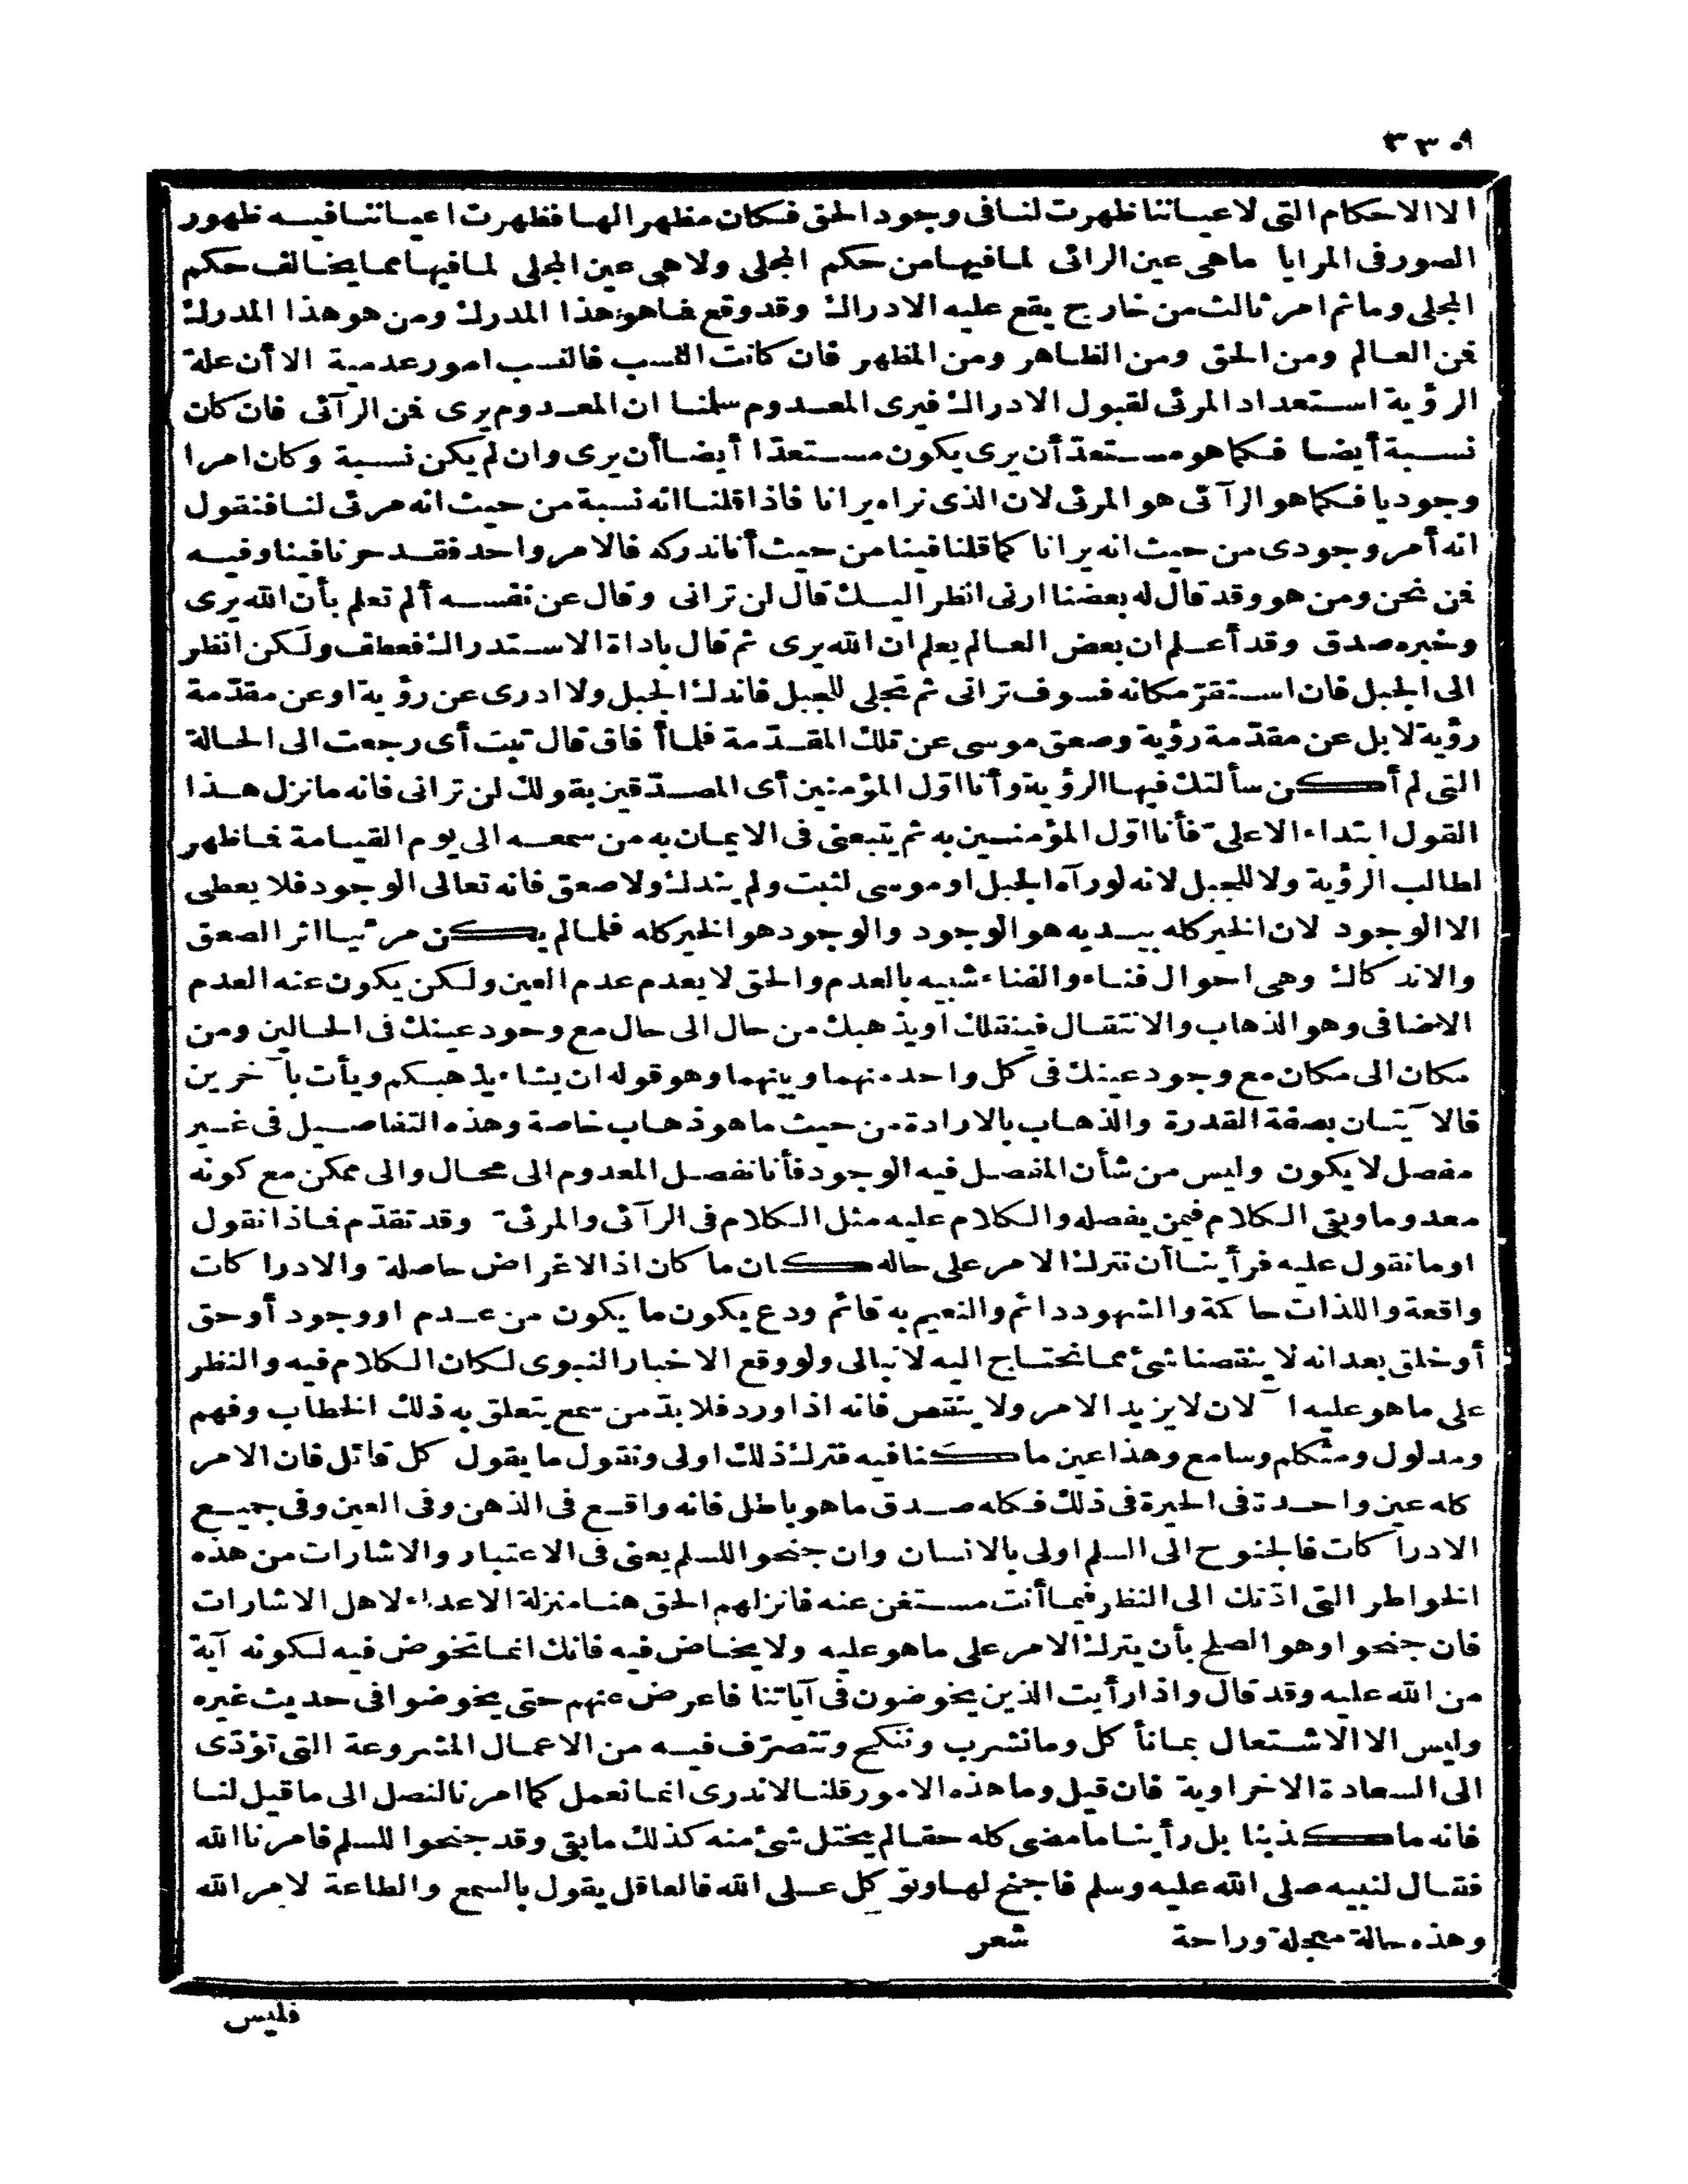 ٣٣٠٩
الا الاحكام التى لاعياننا ظهرت لنا فى وجود الحق فكان مظهرا لها فظهرت اعياننا فيه ظهور
الصور فى المرايا ماهى عين الرائى لما فيها من حكم المجلى ولا هى عين المجلى لما فيها مما يخالف حكم
المجلى وما ثم امر ثالث من خارج يقع عليه الادراك وقد وقع فما هو هذا المدرك ومن هو هذا المدرك
فمن العالم ومن الحق ومن الظاهر ومن المظهر فان كانت النسب فالنسب امور عدمية الا أن علة
الرؤية استعداد المرئى لقبول الادراك فيرى المعدوم سلمنا ان المعدوم يرى فمن الرآئى فان كان
نسبة أيضا فكما هو مستعدّ أن يرى يكون مستعدّا أيضا أن يرى وان لم يكن نسبة وكان امرا
وجوديا فكما هو الرآئى هو المرئى لان الذى نراه يرانا فاذا قلنا انه نسبة من حيث انه مرئى لنا فنقول
انه أمر وجودى من حيث انه يرانا كما قلنا فينا من حيث أنا ندركه فالامر واحد فقد حرنا فينا وفيه
فمن نحن ومن هو وقد قال له بعضنا ارنى انظر اليك قال لن ترانى وقال عن نفسه ألم تعلم بأن الله يرى
وخبره صدق وقد أعلم ان بعض العالم يعلم ان الله يرى ثم قال باداة الاستدراك فعطف ولكن انظر
الى الجبل فان استقرّ مكانه فسوف ترانى ثم تجلى للجبل فاندك الجبل ولا ادرى عن رؤية او عن مقدّمة
رؤية لا بل عن مقدّمة رؤية وصعق موسى عن تلك المقدّمة فلما أفاق قال تبت أى رجعت الى الحالة
التى لم أكن سألتك فيها الرؤية وأنا اوّل المؤمنين أى المصدّقين بقولك لن ترانى فانه ما نزل هذا
القول ابتداء الا علىّ فأنا اوّل المؤمنين به ثم يتبعنى فى الايمان به من سمعه الى يوم القيامة فما ظهر
لطالب الرؤية ولا للجبل لانه لو رآه الجبل او موسى لثبت ولم يندك ولا صعق فانه تعالى الوجود فلا يعطى
الا الوجود لان الخير كله بيديه هو الوجود والوجود هو الخير كله فلما لم يكن مرئيا اثر الصعق
والاندكاك وهى احوال فناء والفناء شبيه بالعدم والحق لا يعدم عدم العين ولكن يكون عنه العدم
الاضافى وهو الذهاب والانتقال فينقلك او يذهبك من حال الى حال مع وجود عينك فى الحالين ومن
مكان الى مكان مع وجود عينك فى كل واحد منهما وبينهما وهو قوله ان يشاء يذهبكم ويأت بآخرين
فالآيتان بصفة القدرة والذهاب بالارادة من حيث ما هو ذهاب خاصة وهذه التفاصيل فى غير
مفصل لا يكون وليس من شأن المفصل فيه الوجود فأنا نفصل المعدوم الى محال والى ممكن مع كونه
معدوما وبقى الكلام فيمن يفصله والكلام عليه مثل الكلام فى الرآئى والمرئىّ وقد تقدّم فماذا نقول
او ما نقول عليه فرأينا أن نترك الامر على حاله كان ما كان اذ الاغراض حاصلة والادراكات
واقعة واللذات حاكمة والشهود دائم والنعيم به قائم ودع يكون ما يكون من عدم او وجود أو حق
أو خلق بعد انه لا ينقصنا شئ مما نحتاج اليه لا نبالى ولو وقع الاخبار النبوى لكان الكلام فيه والنظر
على ما هو عليه الآن لا يزيد الامر ولا ينقص فانه اذا ورد فلا بدّ من سمع يتعلق به ذلك الخطاب وفهم
ومدلول ومتكلم وسامع وهذا عين ما كنا فيه فترك ذلك اولى ونقول ما يقول كل قائل فان الامر
كله عين واحدة فى الحيرة فى ذلك فكله صدق ما هو باطل فانه واقع فى الذهن وفى العين وفى جميع
الادراكات فالجنوح الى السلم اولى بالانسان وان جنحوا للسلم يعنى فى الاعتبار والاشارات من هذه
الخواطر التى ادّتك الى النظر فيما أنت مستغن عنه فانزلهم الحق هنا منزلة الاعداء لاهل الاشارات
فان جنحوا وهو الصلح بأن يترك الامر على ما هو عليه ولا يخاض فيه فانك انما تخوض فيه لكونه آية
من الله عليه وقد قال واذا رأيت الذين يخوضون فى آياتنا فاعرض عنهم حتى يخوضوا فى حديث غيره
وليس الا الاشتعال بما نأكل وما نشرب وننكح ونتصرّف فيه من الاعمال المشروعة التى تؤدّى
الى السعادة الاخراوية فان قيل وما هذه الامور قلنا لا ندرى انما نعمل كما امرنا لنصل الى ما قيل لنا
فانه ما كذبنا بل رأينا ما مضى كله حقا لم يختل شئ منه كذلك ما بقى وقد جنحوا للسلم فامرنا الله
فقال لنبيه صلى الله عليه وسلم فاجنح لها وتوكل على الله فالعاقل يقول بالسمع والطاعة لامر الله
وهذه حالة معجلة وراحة شعر
فليس